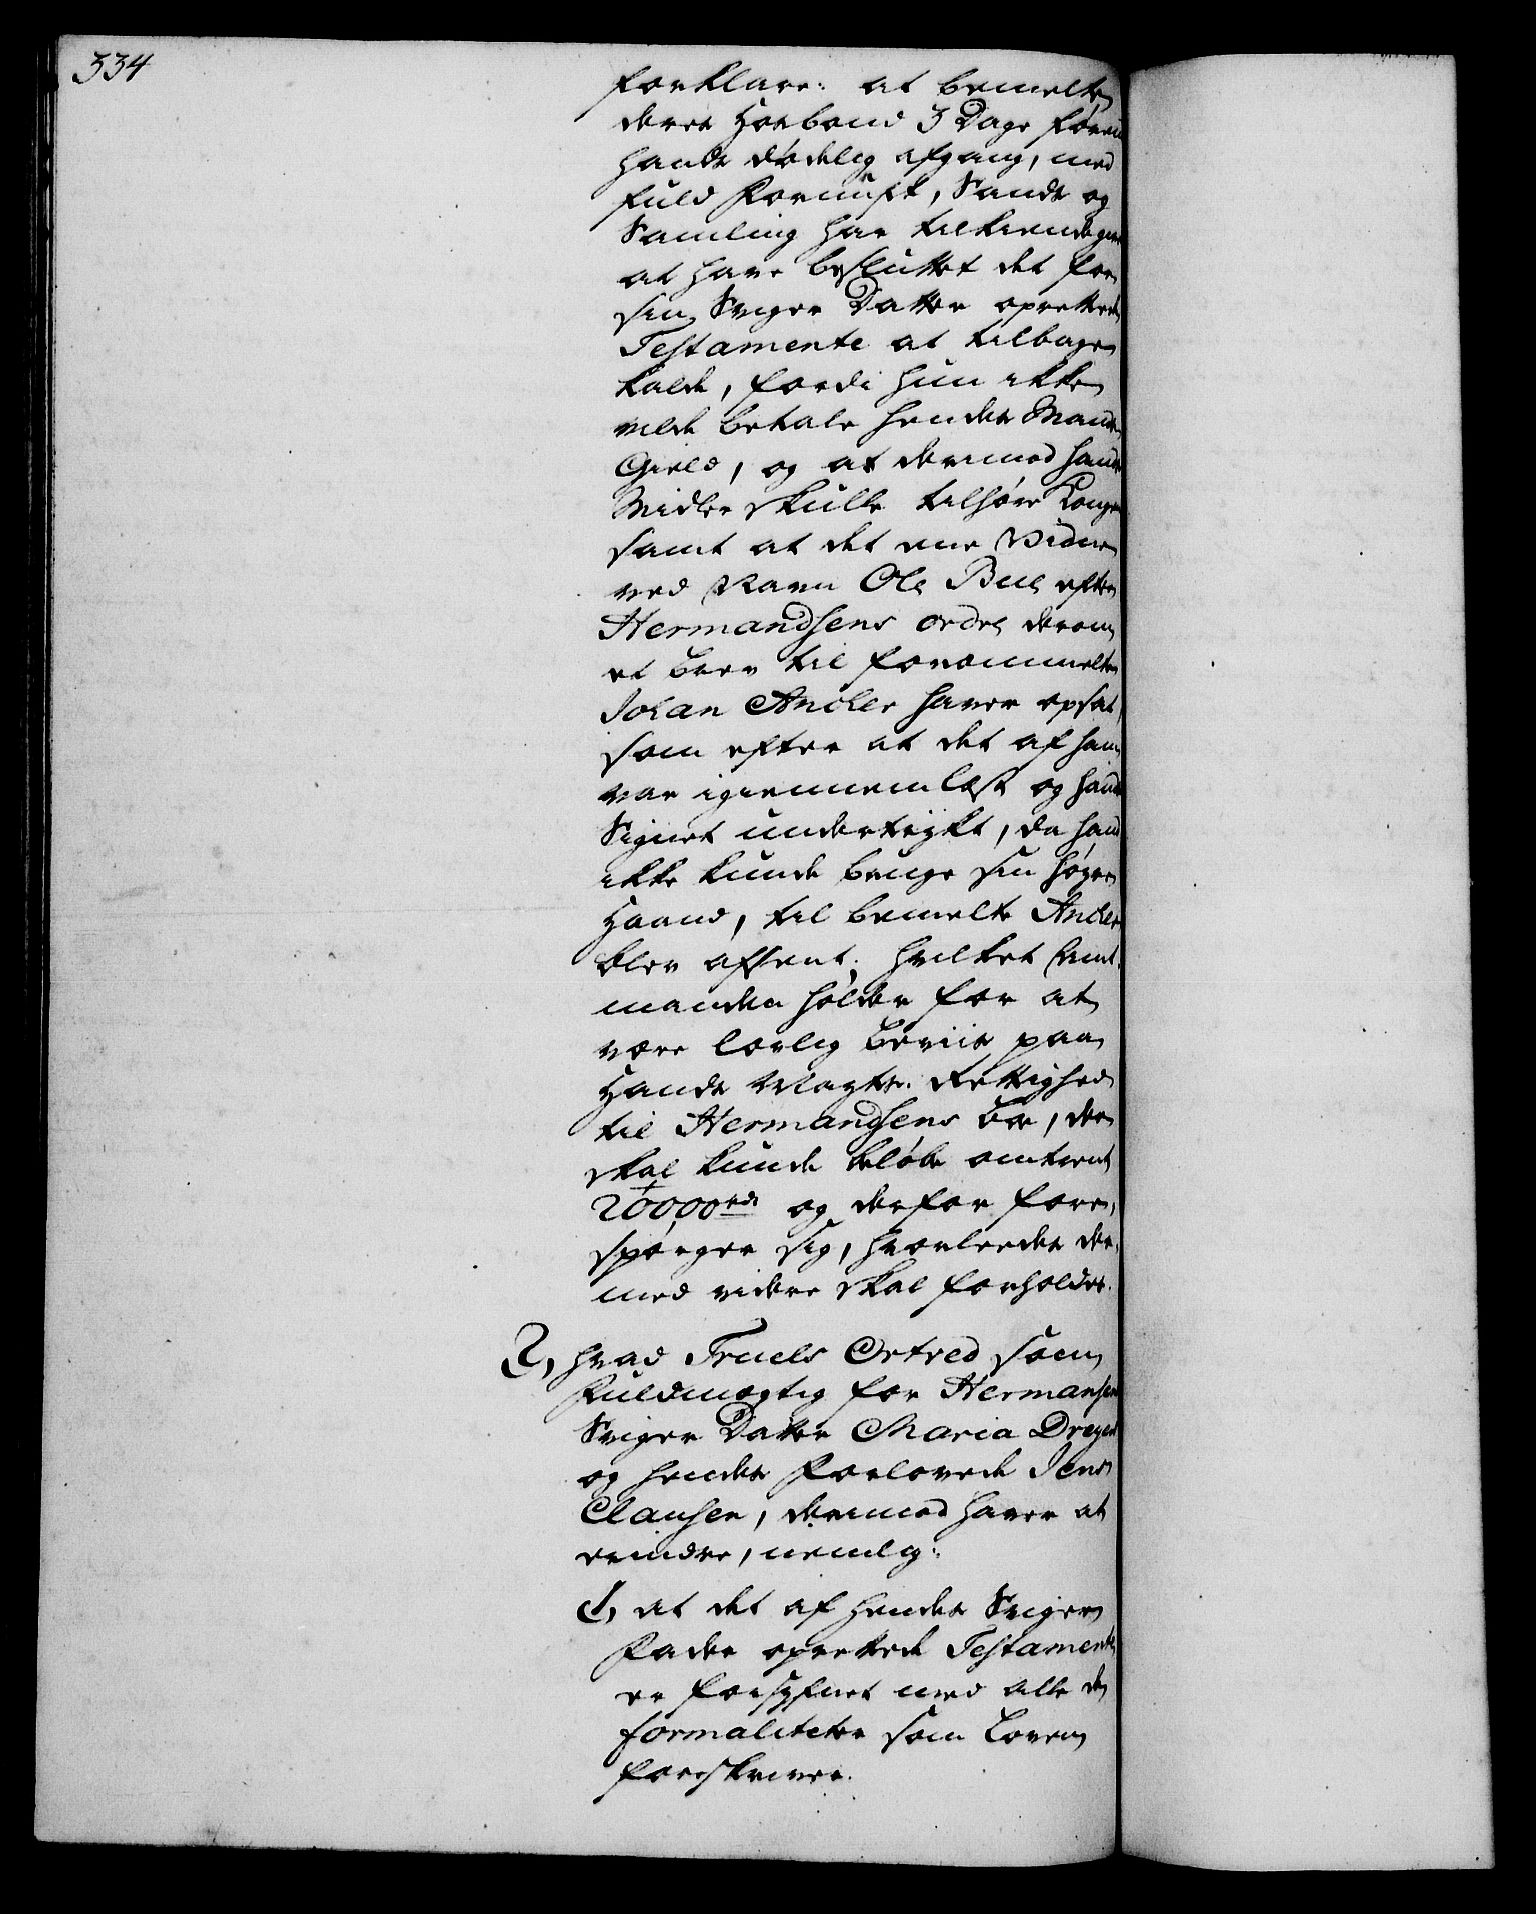 334
forklare: at bemelte
deres Hosbond 3 Dage før
hands dødelig afgang, med
fuld Fornuft, Sands og
Samling har tilkiendegivet
at have besluttet det for
sin Sviger Datter oprettede
Testamente at tilbage
kalde, fordi hun ikke
vilde betale hendes Mands
Gield, og at derimod hands
Midler skulle tilhøre Kongen
samt at det ene Vidne
ved Navn Ole Bue efter
Hermandsens ordre derom
et brev til forommelte
Johan Ancher haver opsat,
som efter at det af ham
var igiennemlæst og hands
Signet undertrykt, da hand
ikke kunde bruge sin høyre
Haand, til bemelte Ancher
blev afsent; hvilket Amt-
manden holder for at
være lovlig beviis paa
Hands Mayts. Rettighed
til Hermandsens boe, der
skal kunde beløbe omtrent
20000 rdr og derfor fore-
spørger sig, hvorledes der-
med videre skal forholdes.
2, hvad Truels Ortved som
Fuldmægtig for Hermansens
Sviger Datter Maria Dreyer
og hendes Forlovede Jens
Clausen, derimod haver at
erindre, nemlig:
1, at det af hendes Sviger
Fader oprettede Testamente
er forsynet med alle de
formaliteter som Loven
foreskriver.